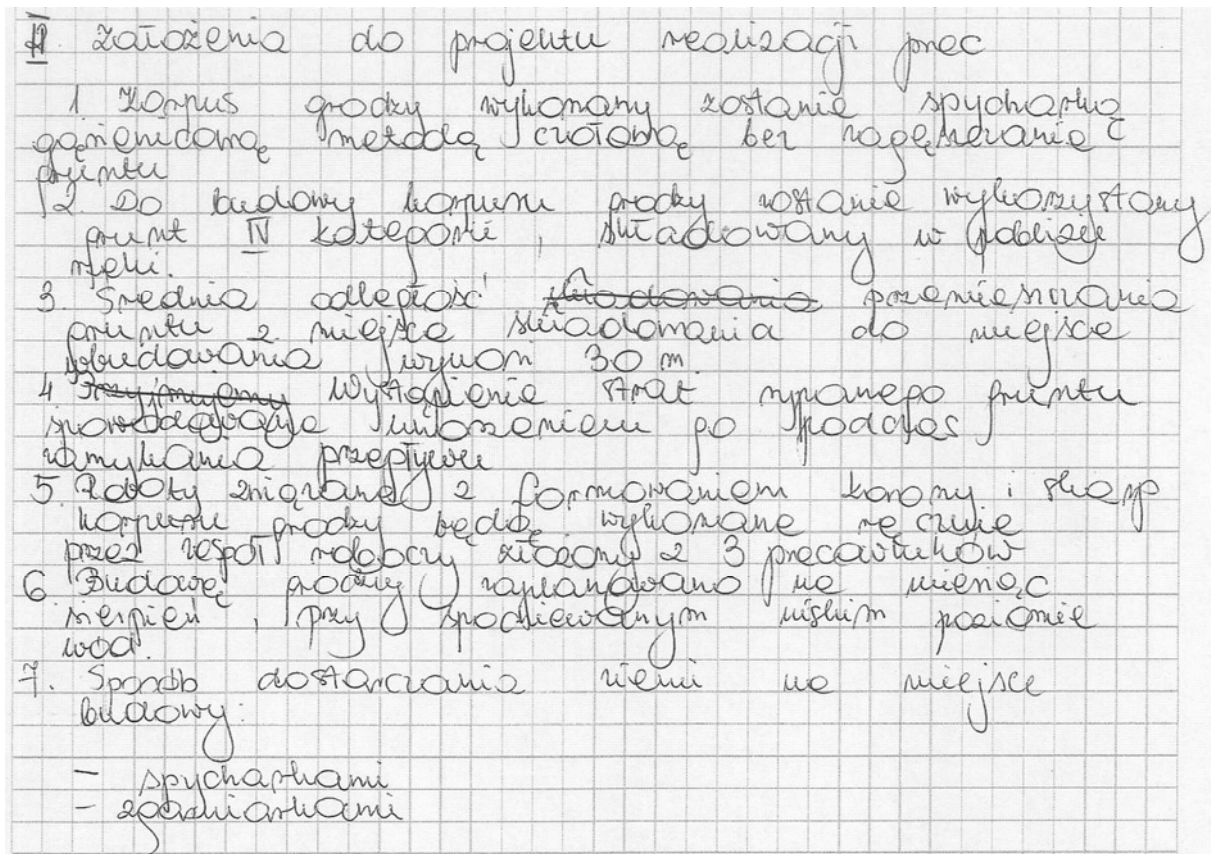 II. Założenia do projektu realizacji prac
1 Korpus grodzy wykonany zostanie spycharką
gąsienicową metodą czołową bez zagęszczania
gruntu
2. Do budowy korpusu grodzy zostanie wykorzystany
grunt IV kategorii, składowany w pobliżu
rzeki.
3. Średnia odległość składowania przemieszczania
gruntu z miejsca składowania do miejsca
wbudowania wynosi 30 m.
4 Przyjmujemy Wystąpienie strat sypanego gruntu
spowodowane unoszeniem go podczas
zamykania przepływu
5. Roboty związane z formowaniem korony i skarp
korpusu grodzy będą wykonane ręcznie
przez zespół roboczy złożony z 3 pracowników
6 Budowę grodzy zaplanowano na miesiąc
sierpień, przy spodziewanym niskim poziomie
wód.
7. Sposób dostarczania ziemi na miejsce
budowy:
- spycharkami
- zgarniarkami